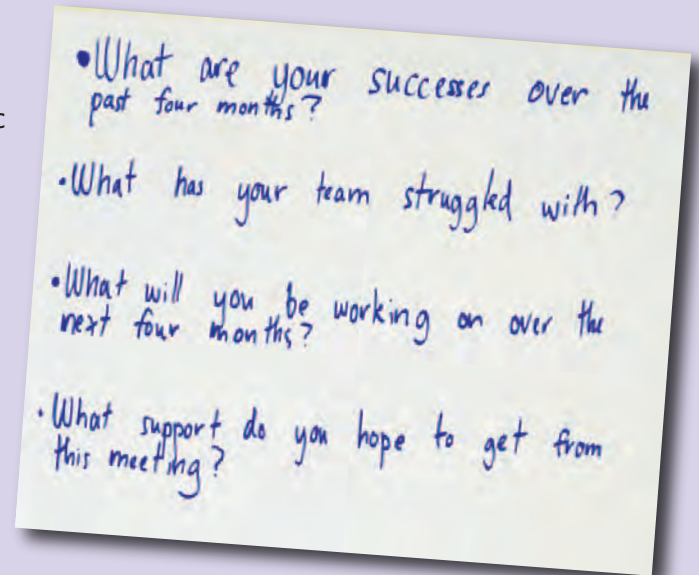 •What are your successes over the
past four months?
•What has your team struggled with?
•What will you be working on over the
next four months?
•What support do you hope to get from
this meeting?
c